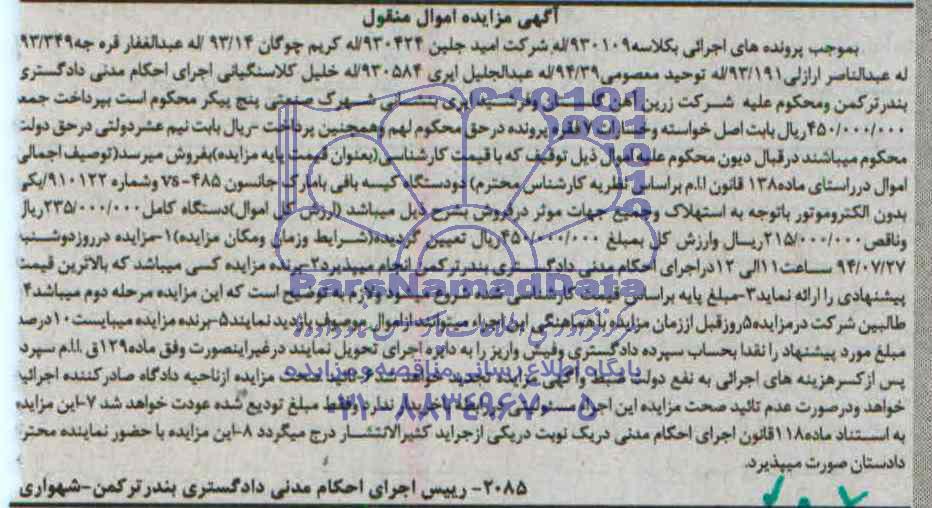 آگهی مزایده اموال منقول
بموجب پرونده های اجرائی بکلاسه۹۳۰۱۰۹/له شرکت امید جلین ۹۳۰۴۲۴/له کریم چوگان ۹۳/۱۴ /له عبدالغفار قره جه۹۳/۳۴۹
له عبدالناصر ارازلی۹۳/۱۹۱/له توحید معصومی۹۴/۳۹/له عبدالجلیل ایری ۹۳۰۵۸۴/له خلیل کلاسنگیانی اجرای احکام مدنی دادگستری
بندرترکمن ومحکوم علیه شرکت زرین آهن گلستان وفرشید ایری بنشانی شهرک صنعتی پنج پیکر محکوم است بپرداخت جمعا
۴۵۰/۰۰۰/۰۰۰ریال بابت اصل خواسته وخسارات ۷فقره پرونده درحق محکوم لهم وهمچنین پرداخت -ریال بابت نیم عشردولتی درحق دولت
محکوم میباشند درقبال دیون محکوم علیه اموال ذیل توقیف که با قیمت کارشناسی(بعنوان قیمت پایه مزایده)بفروش میرسد(توصیف اجمالی
اموال درراستای ماده۱۳۸ قانون ا.ا.م براساس نظریه کارشناس محترم) دودستگاه کیسه بافی بامارک جانسون vs-۴۸۵ وشماره ۹۱۰۱۲۲/یکی
بدون الکتروموتور باتوجه به استهلاک وجمیع جهات موثر درفروش بشرح ذیل میباشد (ارزش کل اموال)دستگاه کامل۲۳۵/۰۰۰/۰۰۰ریال
وناقص۲۱۵/۰۰۰/۰۰۰ریال وارزش کل بمبلغ ۴۵۰/۰۰۰/۰۰۰ریال تعیین گردیده(شرایط وزمان ومکان مزایده)۱-مزایده درروزدوشنبه
۹۴/۰۷/۲۷ ساعت۱۱الی ۱۲دراجرای احکام مدنی دادگستری بندرترکمن انجام میپذیرد۲-برنده مزایده کسی میباشد که بالاترین قیمت
پیشنهادی را ارائه نماید۳-مبلغ پایه براساس قیمت کارشناسی شده شروع میشود ولازم به توضیح است که این مزایده مرحله دوم میباشد۴
طالبین شرکت درمزایده۵روزقبل اززمان مزایده باهماهنگی این اجراء میتوانند ازاموال موصوف بازدید نمایند۵-برنده مزایده میبایست۱۰درصد
مبلغ مورد پیشنهاد را نقدا بحساب سپرده دادگستری وفیش واریز را به دایره اجرای تحویل نمایند درغیراینصورت وفق ماده۱۲۹ق.ا.ا.م سپرده
پس ازکسرهزینه های اجرائی به نفع دولت ضبط وآگهی مزایده تجدید خواهد شد۶-تائید صحت مزایده ازناحیه دادگاه صادرکننده اجرائیه
خواهد ودرصورت عدم تائید صحت مزایده این اجرا مسئولیتی دررابطه باخریدار ندارد وفقط مبلغ تودیع شده عودت خواهد شد ۷-این مزایده
به استناد ماده۱۱۸قانون اجرای احکام مدنی دریک نوبت دریکی ازجراید کثیرالانتشار درج میگردد ۸-این مزایده با حضور نماینده محترم
دادستان صورت میپذیرد.
۲۰۸۵- رییس اجرای احکام مدنی دادگستری بندرترکمن-شهواری
ParsNamadData
پایگاه اطلاع رسانی مناقصه و مزایده
۰۲۱-۸۸۳۴۹۶۷۰-۵